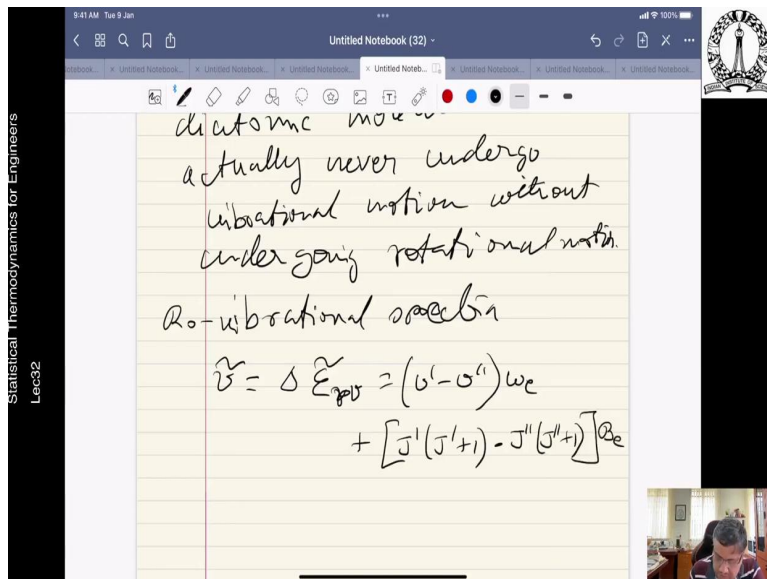 9:41 AM Tue 9 Jan
100%
Untitled Notebook (32)
Untitled Notebook...
Untitled Notebook...
Untitled Notebook...
Untitled Noteb...
Untitled Notebook...
Untitled Notebook...
Untitled Notebook...
Statistical Thermodynamics for Engineers
Lec32
diatomic
actually never undergo
vibrational motion without
undergoing rotational motion.
Ro-vibrational spectra
ṽ = Δ ε̃ = (v' - v'') ωe
+ [J'(J'+1) - J''(J''+1)] Be